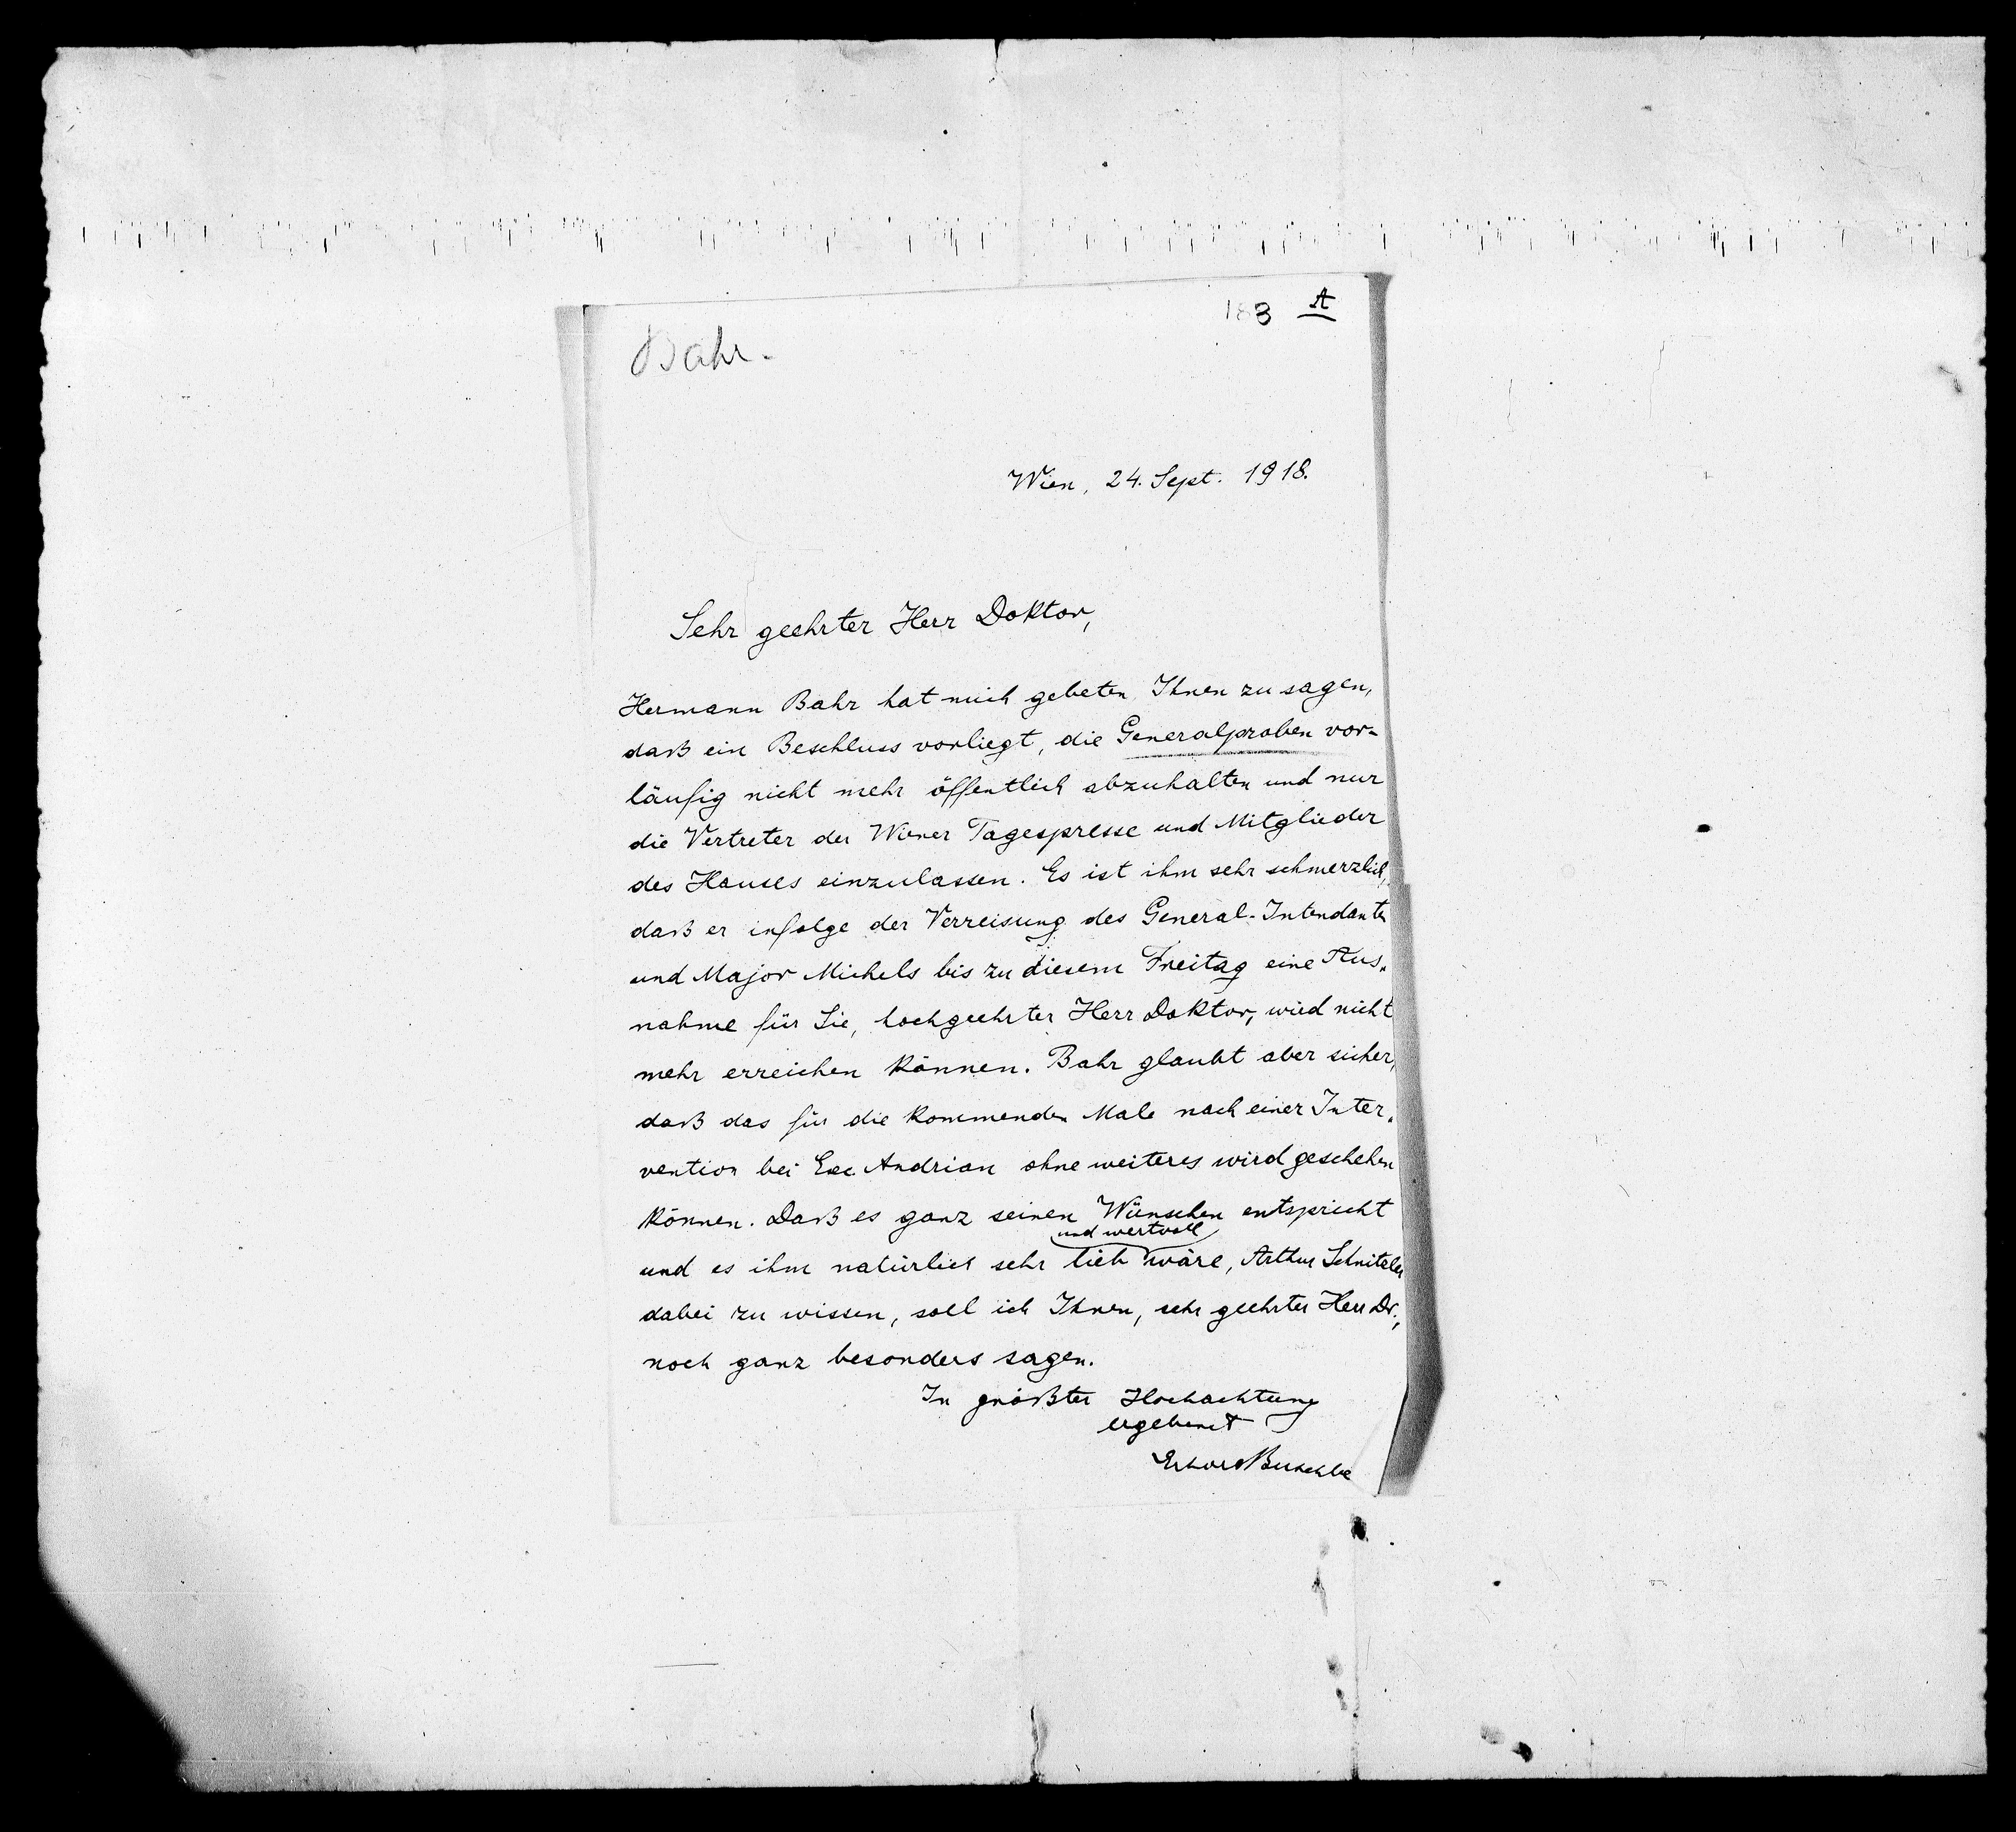 183 A
Bahr.
Wien, 24. Sept. 1918.
Sehr geehrter Herr Doktor,
Hermann Bahr hat mich gebeten Ihnen zu sagen,
daß ein Beschluss vorliegt, die Generalproben vor=
läufig nicht mehr öffentlich abzuhalten und nur
die Vertreter der Wiener Tagespresse und Mitglieder
des Hauses einzulassen. Es ist ihm sehr schmerzlich,
daß er infolge der Verreisung des General-Intendanten
und Major Michels bis zu diesem Freitag eine Aus-
nahme für Sie, hochgeehrter Herr Doktor, wird nicht
mehr erreichen können. Bahr glaubt aber sicher,
daß das für die kommenden Male nach einer Inter-
vention bei Exc Andrian ohne weiteres wird geschehen
können. Daß es ganz seinen Wünschen entspricht
und wertvoll
und es ihm natürlich sehr lieb wäre, Arthur Schnitzler
dabei zu wissen, soll ich Ihnen, sehr geehrter Herr Dr.,
noch ganz besonders sagen.
In größter Hochachtung
ergebenst
Erhard Buschbe